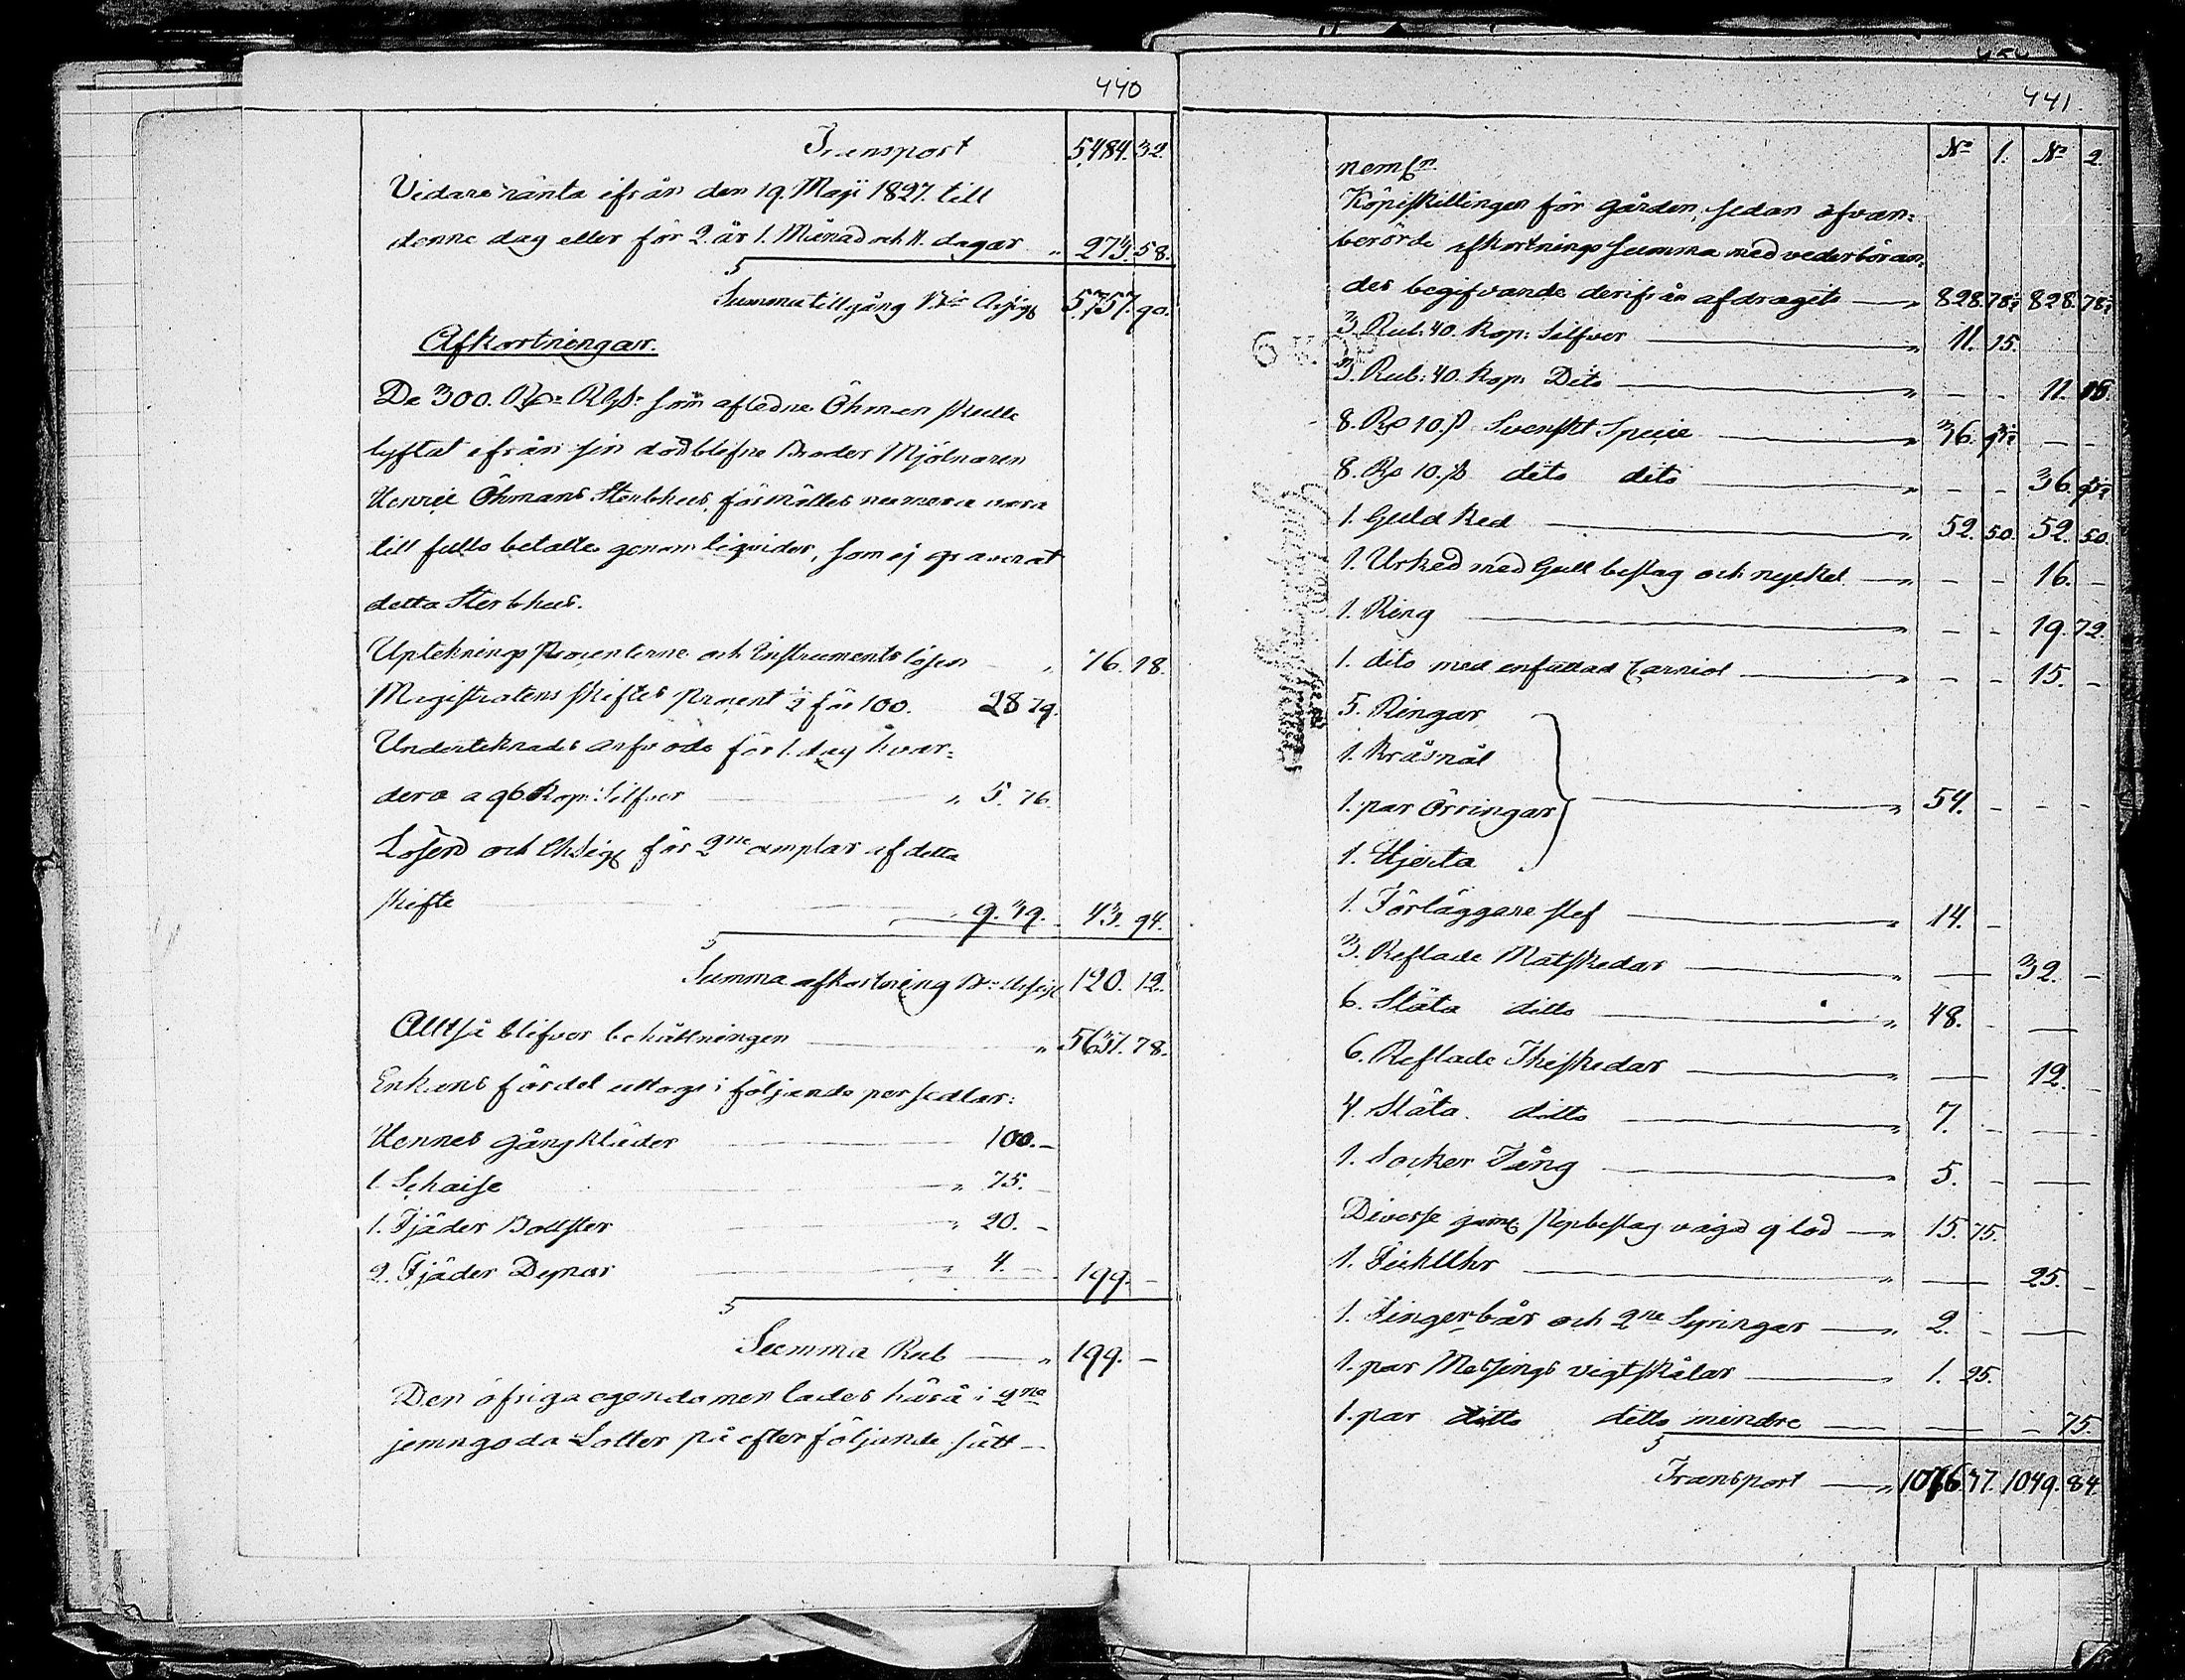 440
Transport 5,484. 32.
Vidare ränta ifrån den 19. Maji 1827. till
denne dag eller för 2. år 1. Månad och 11. dagar „ 273. 58.
Summa tillgång B:co Assign 5,757. 90.
Afkortningar.
De 300. Rd. Rgs. som afledne Öhman skulle
lyftat ifrån sin dödblefne Broder Mjölnaren
Henric Öhmans Sterbhus, förmältes numera vara
till fullo betalte genom liqvider, som ej graverat
detta Sterbhus.
Upteknings Procenterne och Instruments lösen „ 76. 18.
Magistratens skiftes procent ½ för 100. 28 79.
Underteknads arfvode för 1. dag hvar-
dera a 96. Kop: Silfver „ 5. 76.
Lösen och Ch: Sig: för 2ne exemplar af detta
skifte „ 9. 39. 43. 94.
Summa afkortning B:co Assign 120. 12.
Alltså blifver behållningen „ 5637. 78.
Enkans fördel uttogs i följande persedlar:
Hennes gångkläder 100. –
1. Schaise „ 75. –
1. Fjäder Bollster „ 20. –
2. Fjäder Dynor „ 4. – 199. –
Summa Rub „ 199. –
Den öfriga egendomen lades härå i 2ne
jemngoda Lotter på efterföljande sätt –
441
No 1. No 2.
neml:n
Köpeskillingen för gården, sedan ofvan-
berörde afkortnings summa med vederböran-
des begifvande derifrån afdragits „ 828. 78½ 828. 78½
3. Rub: 40. Kop: Silfver „ 11. 15.
3. Rub: 40. Kop: Dito „ – – 11. 15.
8. Rd 10. s Svenskt Specie „ 36. 93½ – –
8. Rd 10. s dito dito „ – – 36. 93½
1. Guld Ked „ 52. 50. 52. 50.
1. Urked med Gull beslag och nyckel „ – – 16. –
1. Ring „ – – 19. 72.
1. dito med enfattad Carniol „ – – 15. –
5. Ringar
1. Kråsnål
1. par Örringar „ 54. – – –
1. Hjerta
1. Förläggare slef „ 14. –
3. Reflade Matskedar „ — 32. –
6. Släta ditto „ 48. – —
6. Reflade Theskedar „ — 12. –
4. Släta ditto „ 7. – —
1. Socker Tång „ 5. – —
Diverse gam: beslag vägd 9 lod „ 15. 75.
1. FickUhr „ — 25. –
1. Fingerbår och 2ne Syringar „ 2. – —
1. par Messings vigtskålar „ 1. 25.
1. par ditto ditto mindre — — – 75.
Transport „ 1076. 37. 1049. 84.